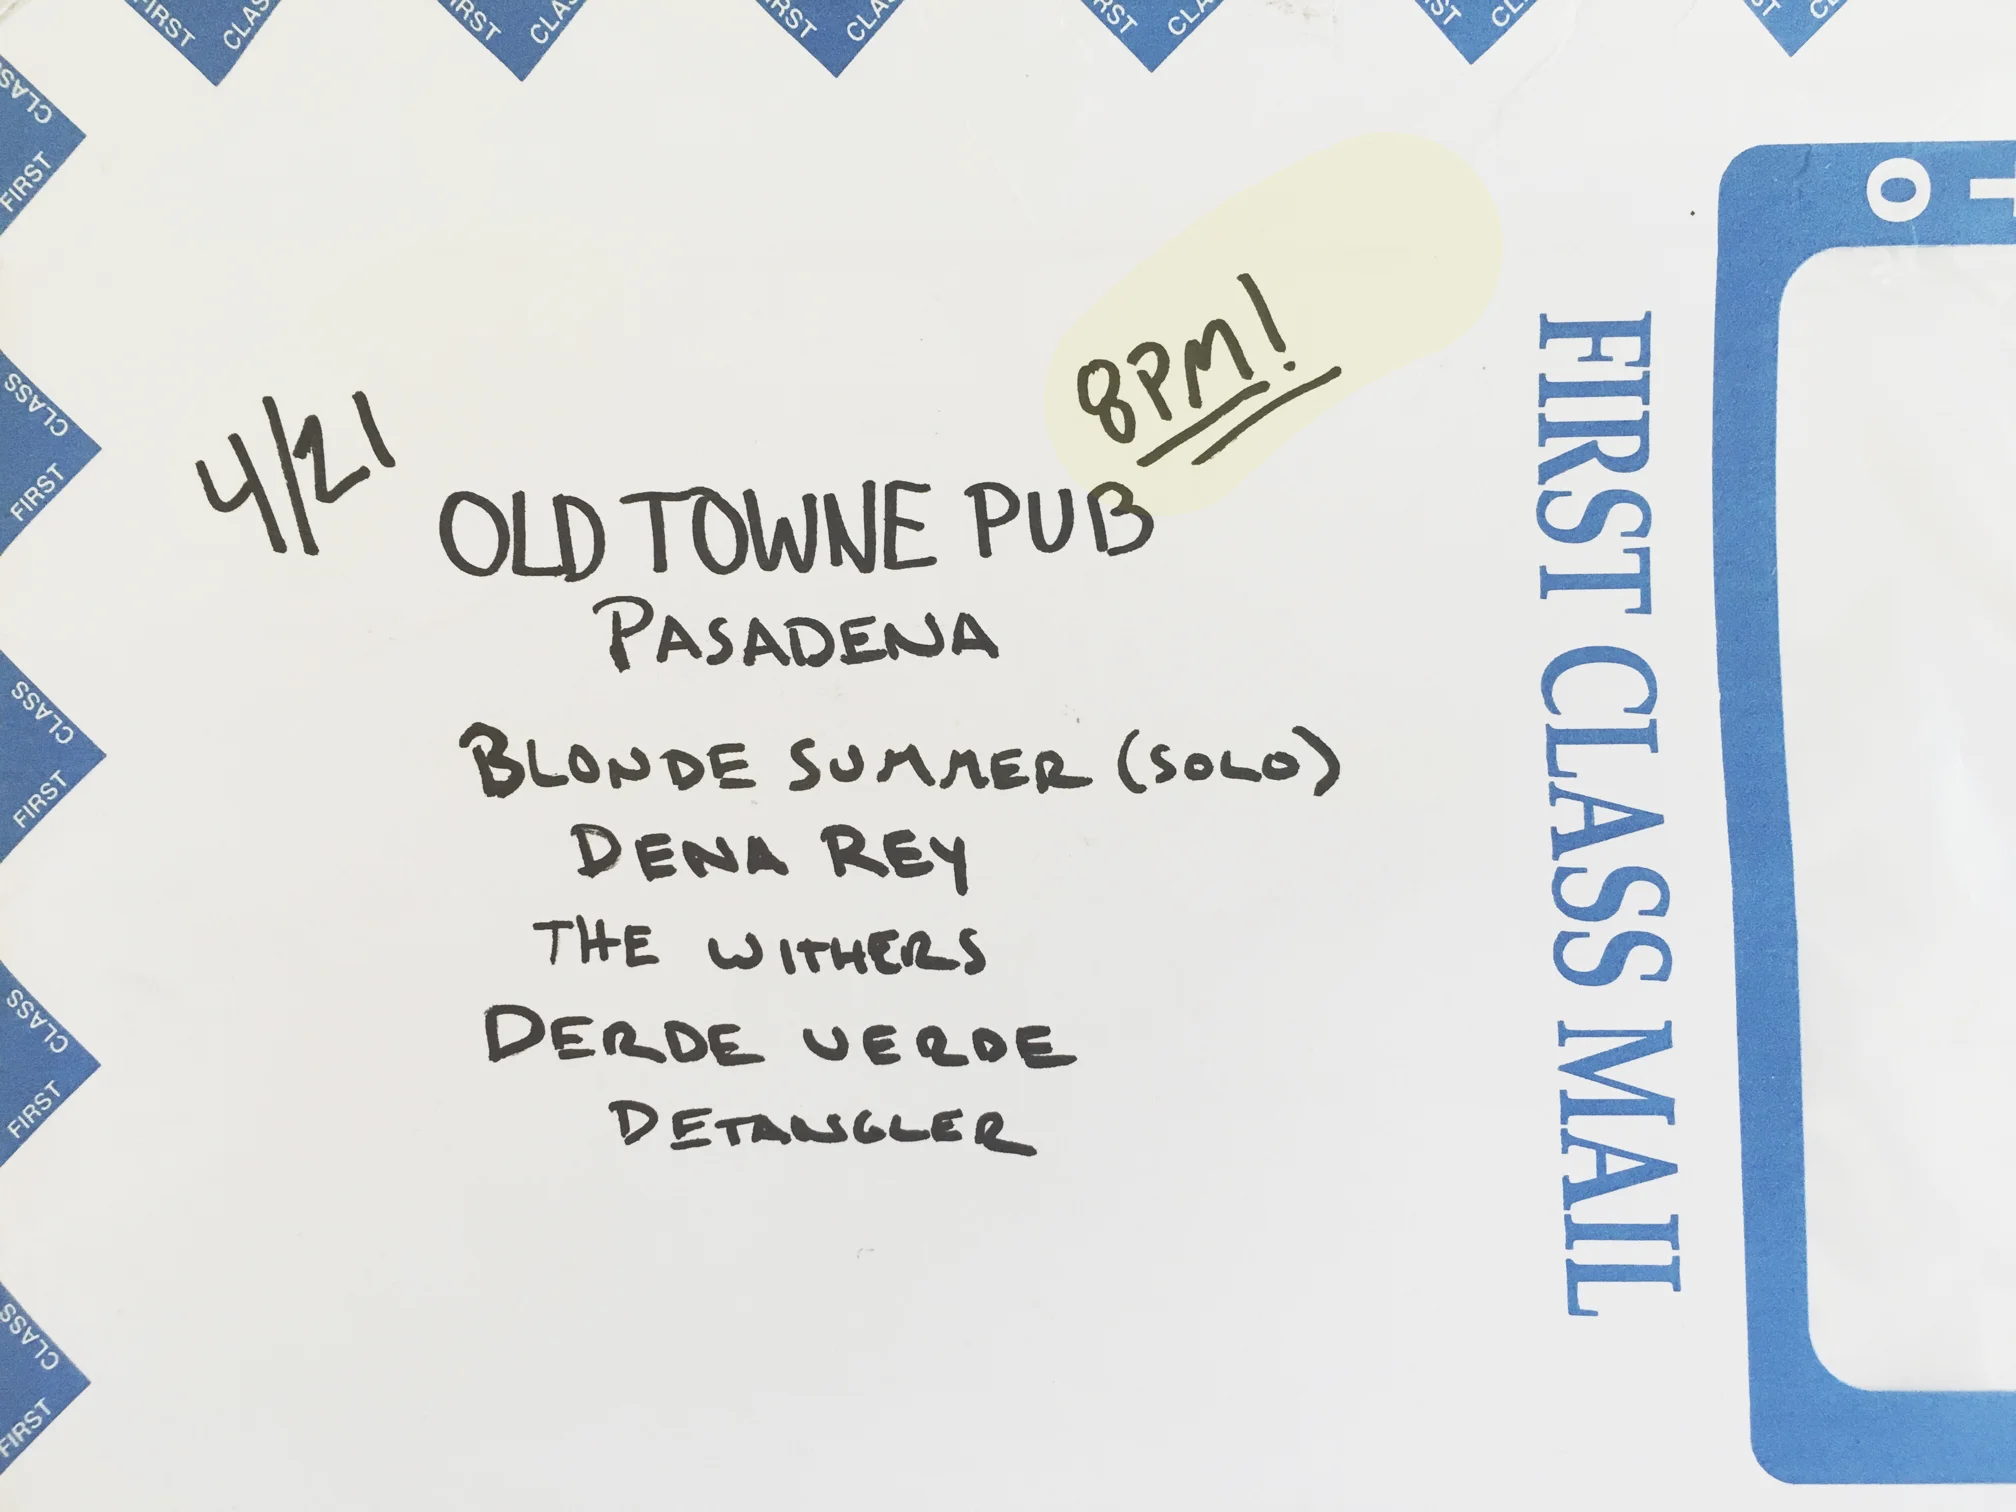 FIRST CLASS
FIRST CLASS
FIRST CLASS
FIRST CLASS
FIRST CLASS
FIRST CLASS
4/21
8PM!
OLD TOWNE PUB
PASADENA
BLONDE SUMMER (SOLO)
DENA REY
THE WITHERS
DERDE VERDE
DETANGLER
FIRST CLASS
FIRST CLASS
FIRST CLASS
FIRST CLASS
FIRST CLASS
FIRST CLASS MAIL
TO